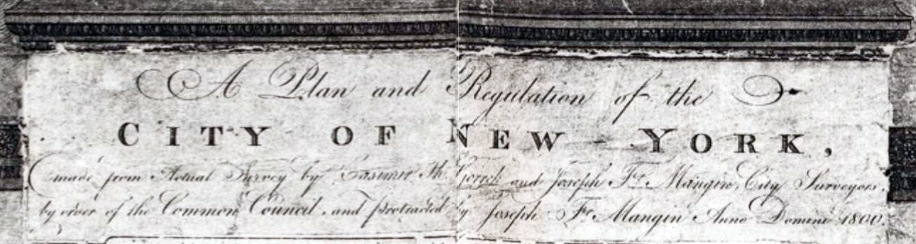 A Plan and Regulation of the
CITY OF NEW-YORK,
made from Actual Survey by Casimir Th. Goerck and Joseph Fr. Mangin, City Surveyors,
by order of the Common Council, and protracted by Joseph Fr. Mangin Anno Domini 1800.